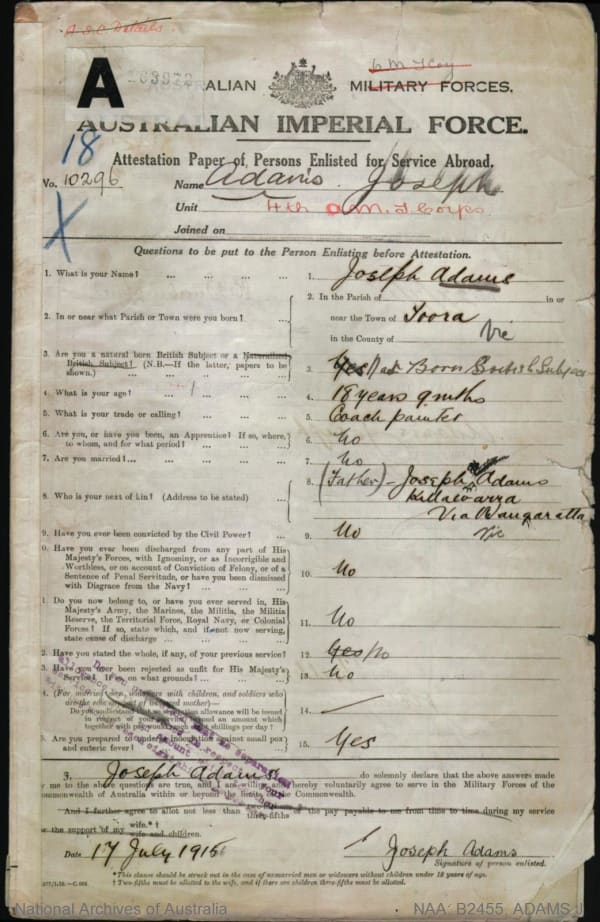 A.S.C Details
A
AUSTRALIAN MILITARY FORCES.
AUSTRALIAN IMPERIAL FORCE.
18
Attestation Paper of Persons Enlisted for Service Abroad.
No. 10296 Name Adams Joseph
Unit 4th A.M.T. Corps
Joined on
X
Questions to be put to the Person Enlisting before Attestation.
1. What is your Name? ... ... ... ... 1. Joseph Adams
2. In or near what Parish or Town were you born? ... 2. In the Parish of in or
near the Town of Toora
in the County of Vic
3. Are you a natural born British Subject or a Naturalized
British Subject? (N.B.—If the latter, papers to be
shown.) ... ... ... ... 3. Yes Nat Born British Subject
4. What is your age? ... ... ... 4. 18 years 9 mths
5. What is your trade or calling? ... ... ... 5. Coach painter
6. Are you, or have you been, an Apprentice? If so, where,
to whom, and for what period? ... ... 6. No
7. Are you married?... ... ... ... 7. No
8. Who is your next of kin? (Address to be stated) ... 8. (Father) – Joseph Adams
Killawarra
Via Wangaratta
Vic
9. Have you ever been convicted by the Civil Power? ... 9. No
0. Have you ever been discharged from any part of His
Majesty's Forces, with Ignominy, or as Incorrigible and
Worthless, or on account of Conviction of Felony, or of a
Sentence of Penal Servitude, or have you been dismissed
with Disgrace from the Navy? ... ... 10. No
1. Do you now belong to, or have you ever served in, His
Majesty's Army, the Marines, the Militia, the Militia
Reserve, the Territorial Force, Royal Navy, or Colonial
Forces? If so, state which, and if not now serving,
state cause of discharge ... ... ... 11. No
2. Have you stated the whole, if any, of your previous service? 12. Yes No
3. Have you ever been rejected as unfit for His Majesty's
Service? If so, on what grounds? ... ... ... 13. No
4. (For married men, widowers with children, and soldiers who
are the sole support of widowed mother)—
Do you understand that no separation allowance will be issued
in respect of your service beyond an amount which
together with pay would reach eight shillings per day? 14. —
5. Are you prepared to undergo inoculation against small pox
and enteric fever? ... ... ... ... 15. Yes
3, Joseph Adams do solemnly declare that the above answers made
by me to the above question are true, and I am willing and hereby voluntarily agree to serve in the Military Forces of the
Commonwealth of Australia within or beyond the limits of the Commonwealth.
And I further agree to allot not less than three-fifths of the pay payable to me from time to time during my service
for the support of my wife.* †
wife and children.
Date 17 July 1916 Joseph Adams
Signature of person enlisted.
*This clause should be struck out in the case of unmarried men or widowers without children under 18 years of age.
† Two-fifths must be allotted to the wife, and if there are children three-fifths must be allotted.
National Archives of Australia NAA: B2455, ADAMS J